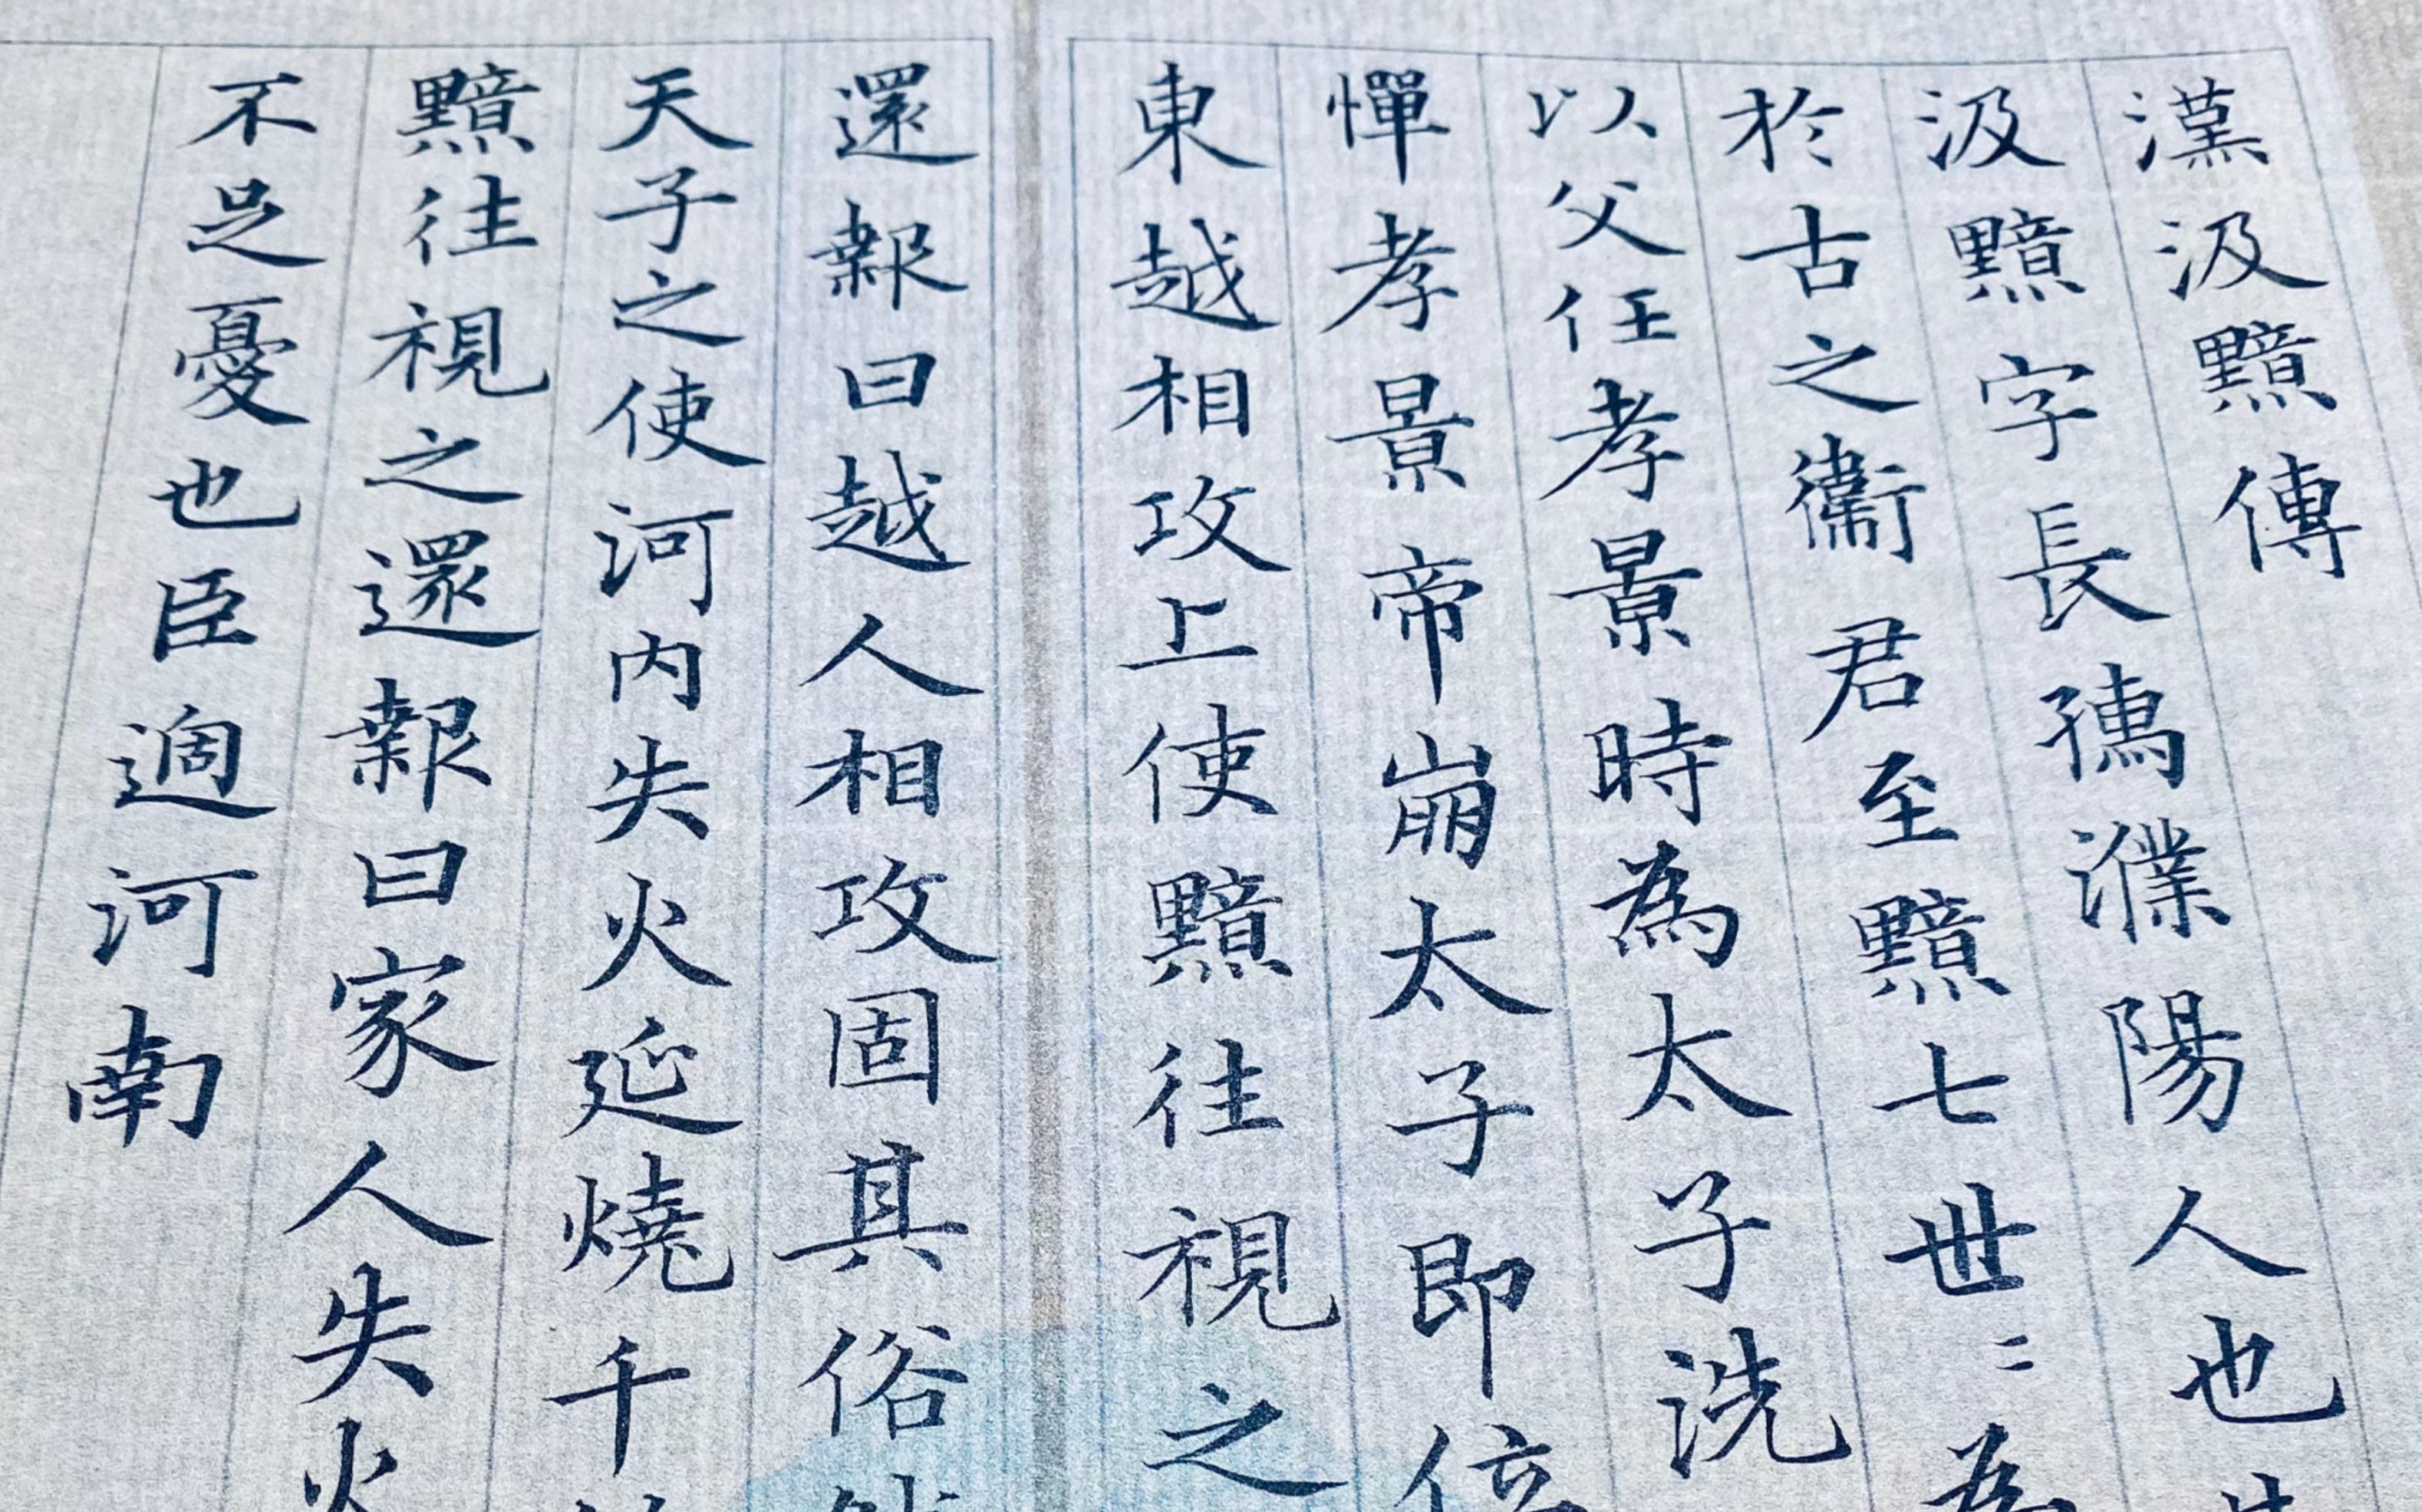 漢汲黯傳
汲黯字長孺濮陽人也
於古之衞君至黯七世〻為
以父任孝景時為太子洗
憚孝景帝崩太子即位
東越相攻上使黯往視之
還報曰越人相攻固其俗
天子之使河内失火延燒千
黯往視之還報曰家人失火
不足憂也臣過河南